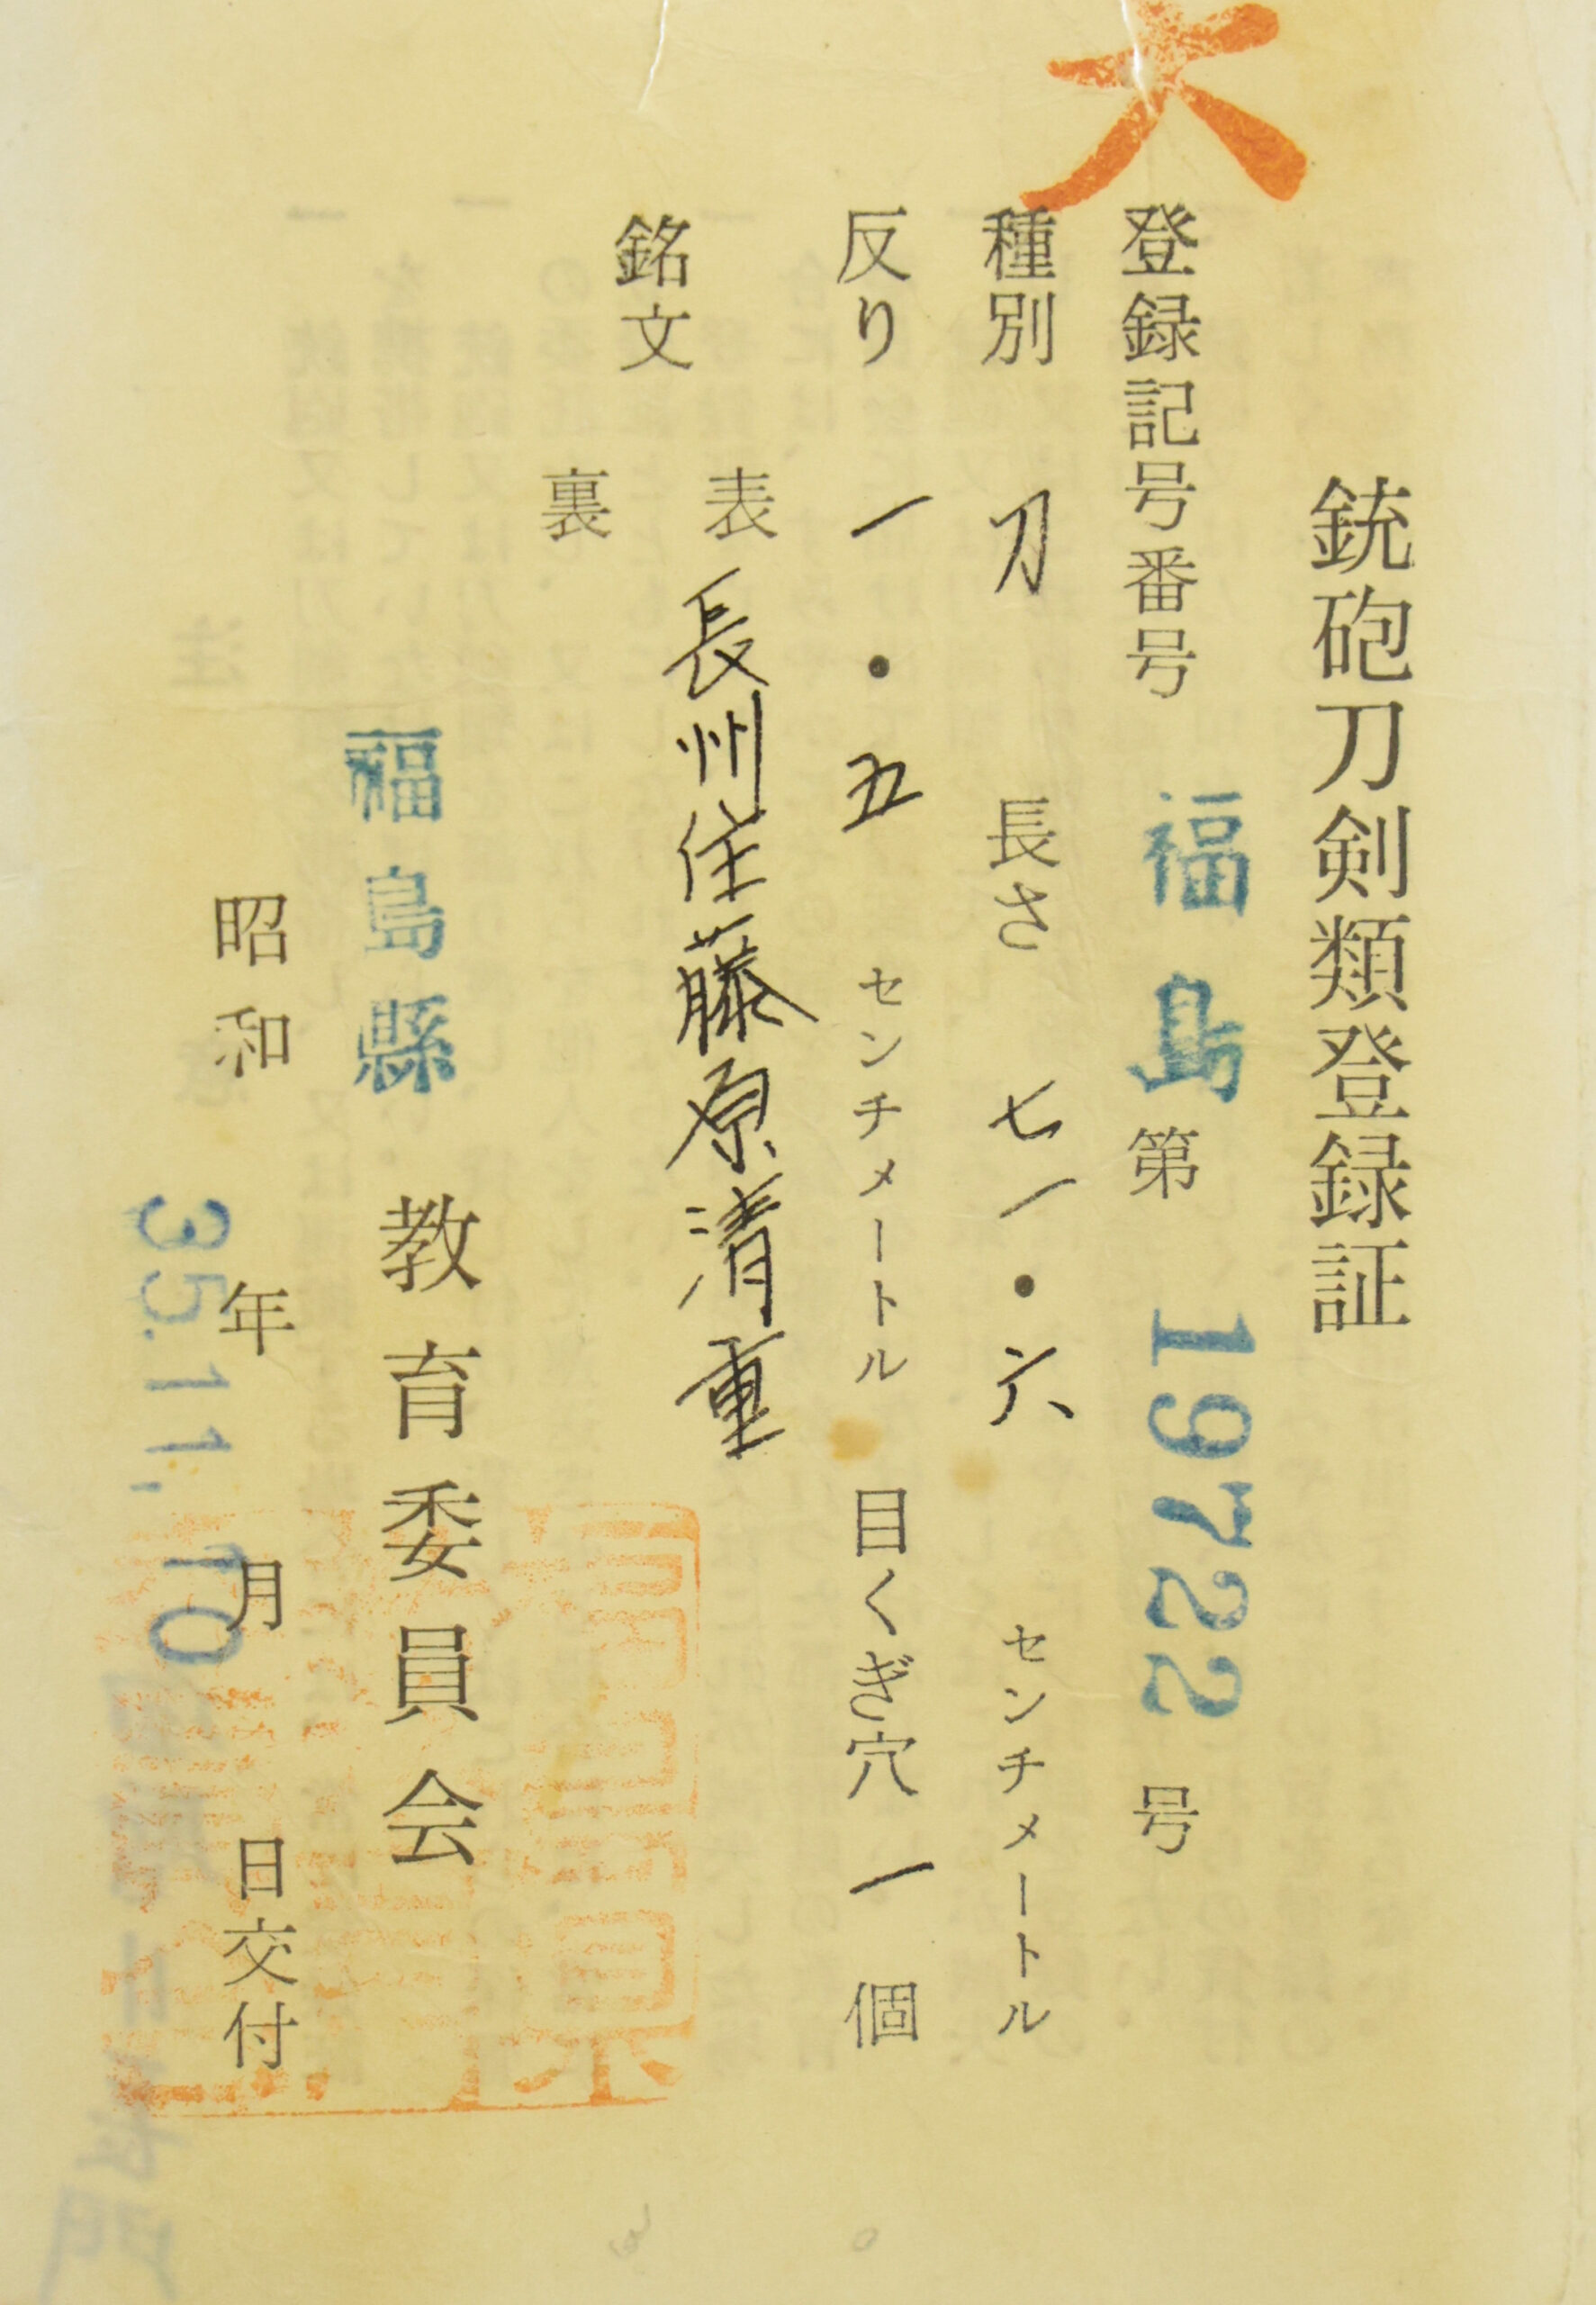 大
銃砲刀剣類登録証
登録記号番号 福島 第 19722 号
種別 刀 長さ 七一・六 センチメートル
反り 一・五 センチメートル 目くぎ穴 一 個
銘文
表 長州住藤原清重
裏
福島縣 教育委員会
昭和 年 月 日交付
35.11.10